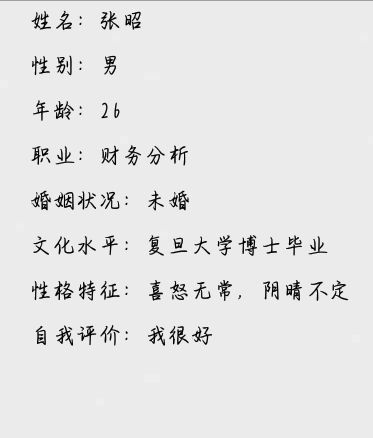 姓名：张昭
性别：男
年龄：26
职业：财务分析
婚姻状况：未婚
文化水平：复旦大学博士毕业
性格特征：喜怒无常，阴晴不定
自我评价：我很好